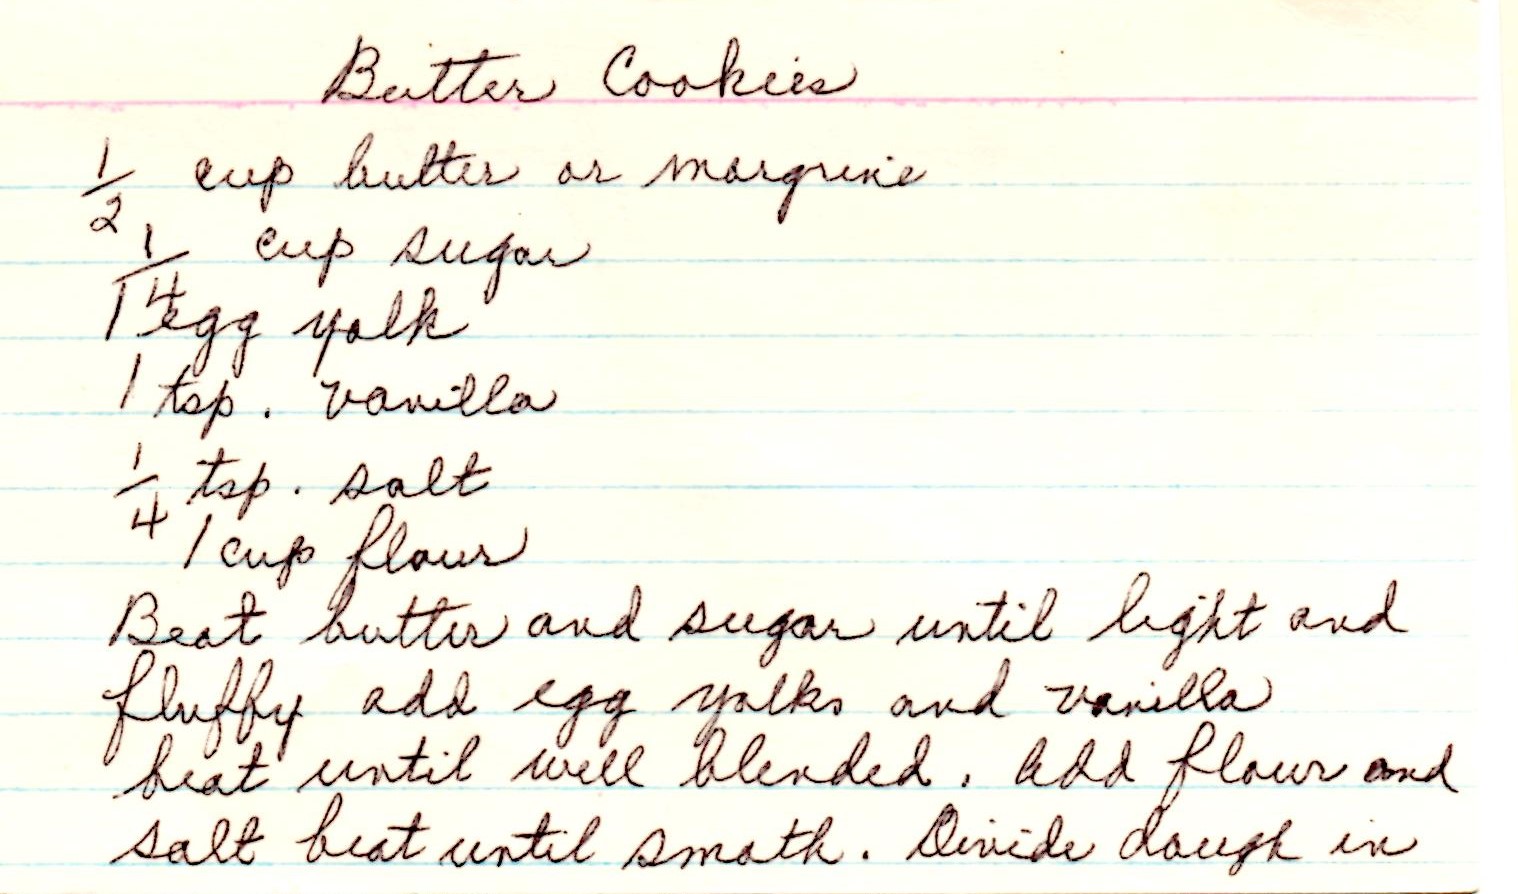 Butter Cookies
1/2 cup butter or margrine
1/4 cup sugar
1 egg yolk
1 tsp. vanilla
1/4 tsp. salt
1 cup flour
Beat butter and sugar until light and
fluffy add egg yolks and vanilla
beat until well blended. Add flour and
salt beat until smoth. Divide dough in